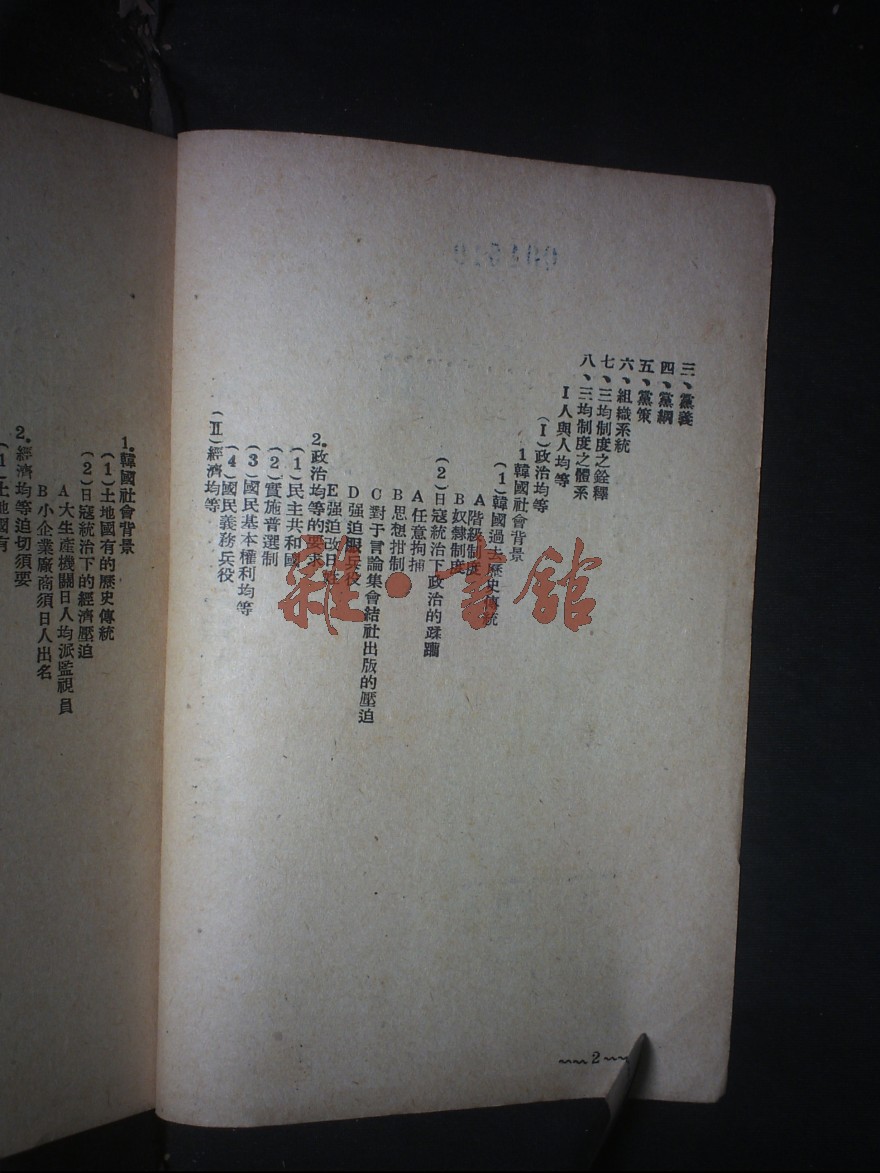 三、黨義
四、黨綱
五、黨策
六、組織系統
七、三均制度之銓釋
八、三均制度之體系
I 人與人均等
(I)政治均等
1 韓國社會背景
(1)韓國過去歷史傳統
A 階級制度
B 奴隸制度
(2)日寇統治下政治的蹂躪
A 任意拘捕
B 思想拑制
C 對于言論集會結社出版的壓迫
D 强迫服兵役
E 强迫改日姓
2.政治均等的要求
(1)民主共和國
(2)實施普選制
(3)國民基本權利均等
(4)國民義務兵役
(II)經濟均等
~~2~~
1.韓國社會背景
(1)土地國有的歷史傳統
(2)日寇統治下的經濟壓迫
A 大生產機關日人均派監視員
B 小企業廠商須日人出名
2.經濟均等迫切須要
(1)土地國有
雜·書館